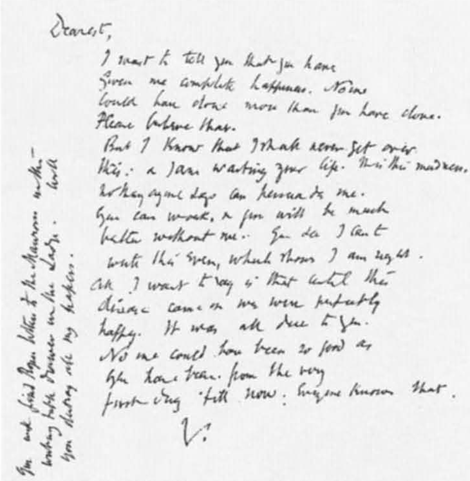 Dearest,
I want to tell you that you have
given me complete happiness. No one
could have done more than you have done.
Please believe that.
But I know that I shall never get over
this: & I am wasting your life. It is this madness.
Nothing anyone says can persuade me.
You can work, & you will be much
better without me. You see I can't
write this even, which shows I am right.
All I want to say is that until this
disease came on we were perfectly
happy. It was all due to you.
No one could have been so good as
you have been, from the very
first day till now. Everyone knows that.
V.
You will find Roger's letters to the Maurons in the
writing table drawer in the Lodge. Will
you destroy all my papers.